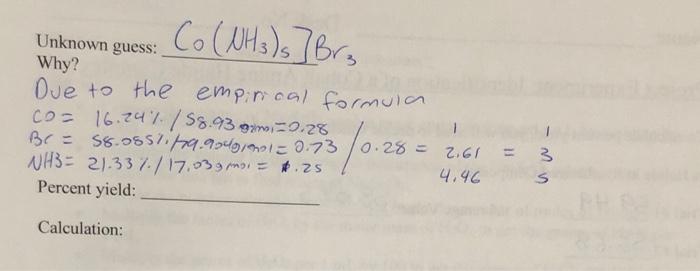 Unknown guess: Co(NH3)5]Br3
Why?
Due to the empirical formula
CO = 16.24% / 58.93 g/mol = 0.28
Br = 58.085% / 79.904g/mol = 0.73 / 0.28 = 2.61 = 3
1 1
NH3 = 21.33% / 17.03g/mol = 1.25
4.46 5
Percent yield:
Calculation: